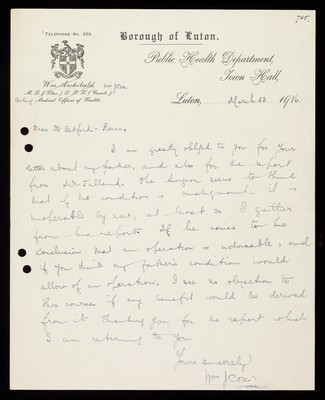 705.
TELEPHONE No. 293.
Borough of Luton.
Public Health Department,
Town Hall,
Wm. Archibald Wm J Cox
M.D.,(Glas.) D.P.H.(Camb.)
Acting Medical Officer of Health.
Luton, March 23 1916.
Dear Dr
I am greatly obliged to you for your
letter about my father, and also for the report
from Mr Tallend. The surgeon seems to think
that if the condition is malignant it is
inoperable by now, at least so I gather
from his report. If he comes to the
conclusion that an operation is advisable, and
if you think my father's condition would
allow of an operation, I see no objection to
this course if any benefit would be derived
from it. Thanking you for the report which
I am returning to you
Yours sincerely
Wm J Cox.